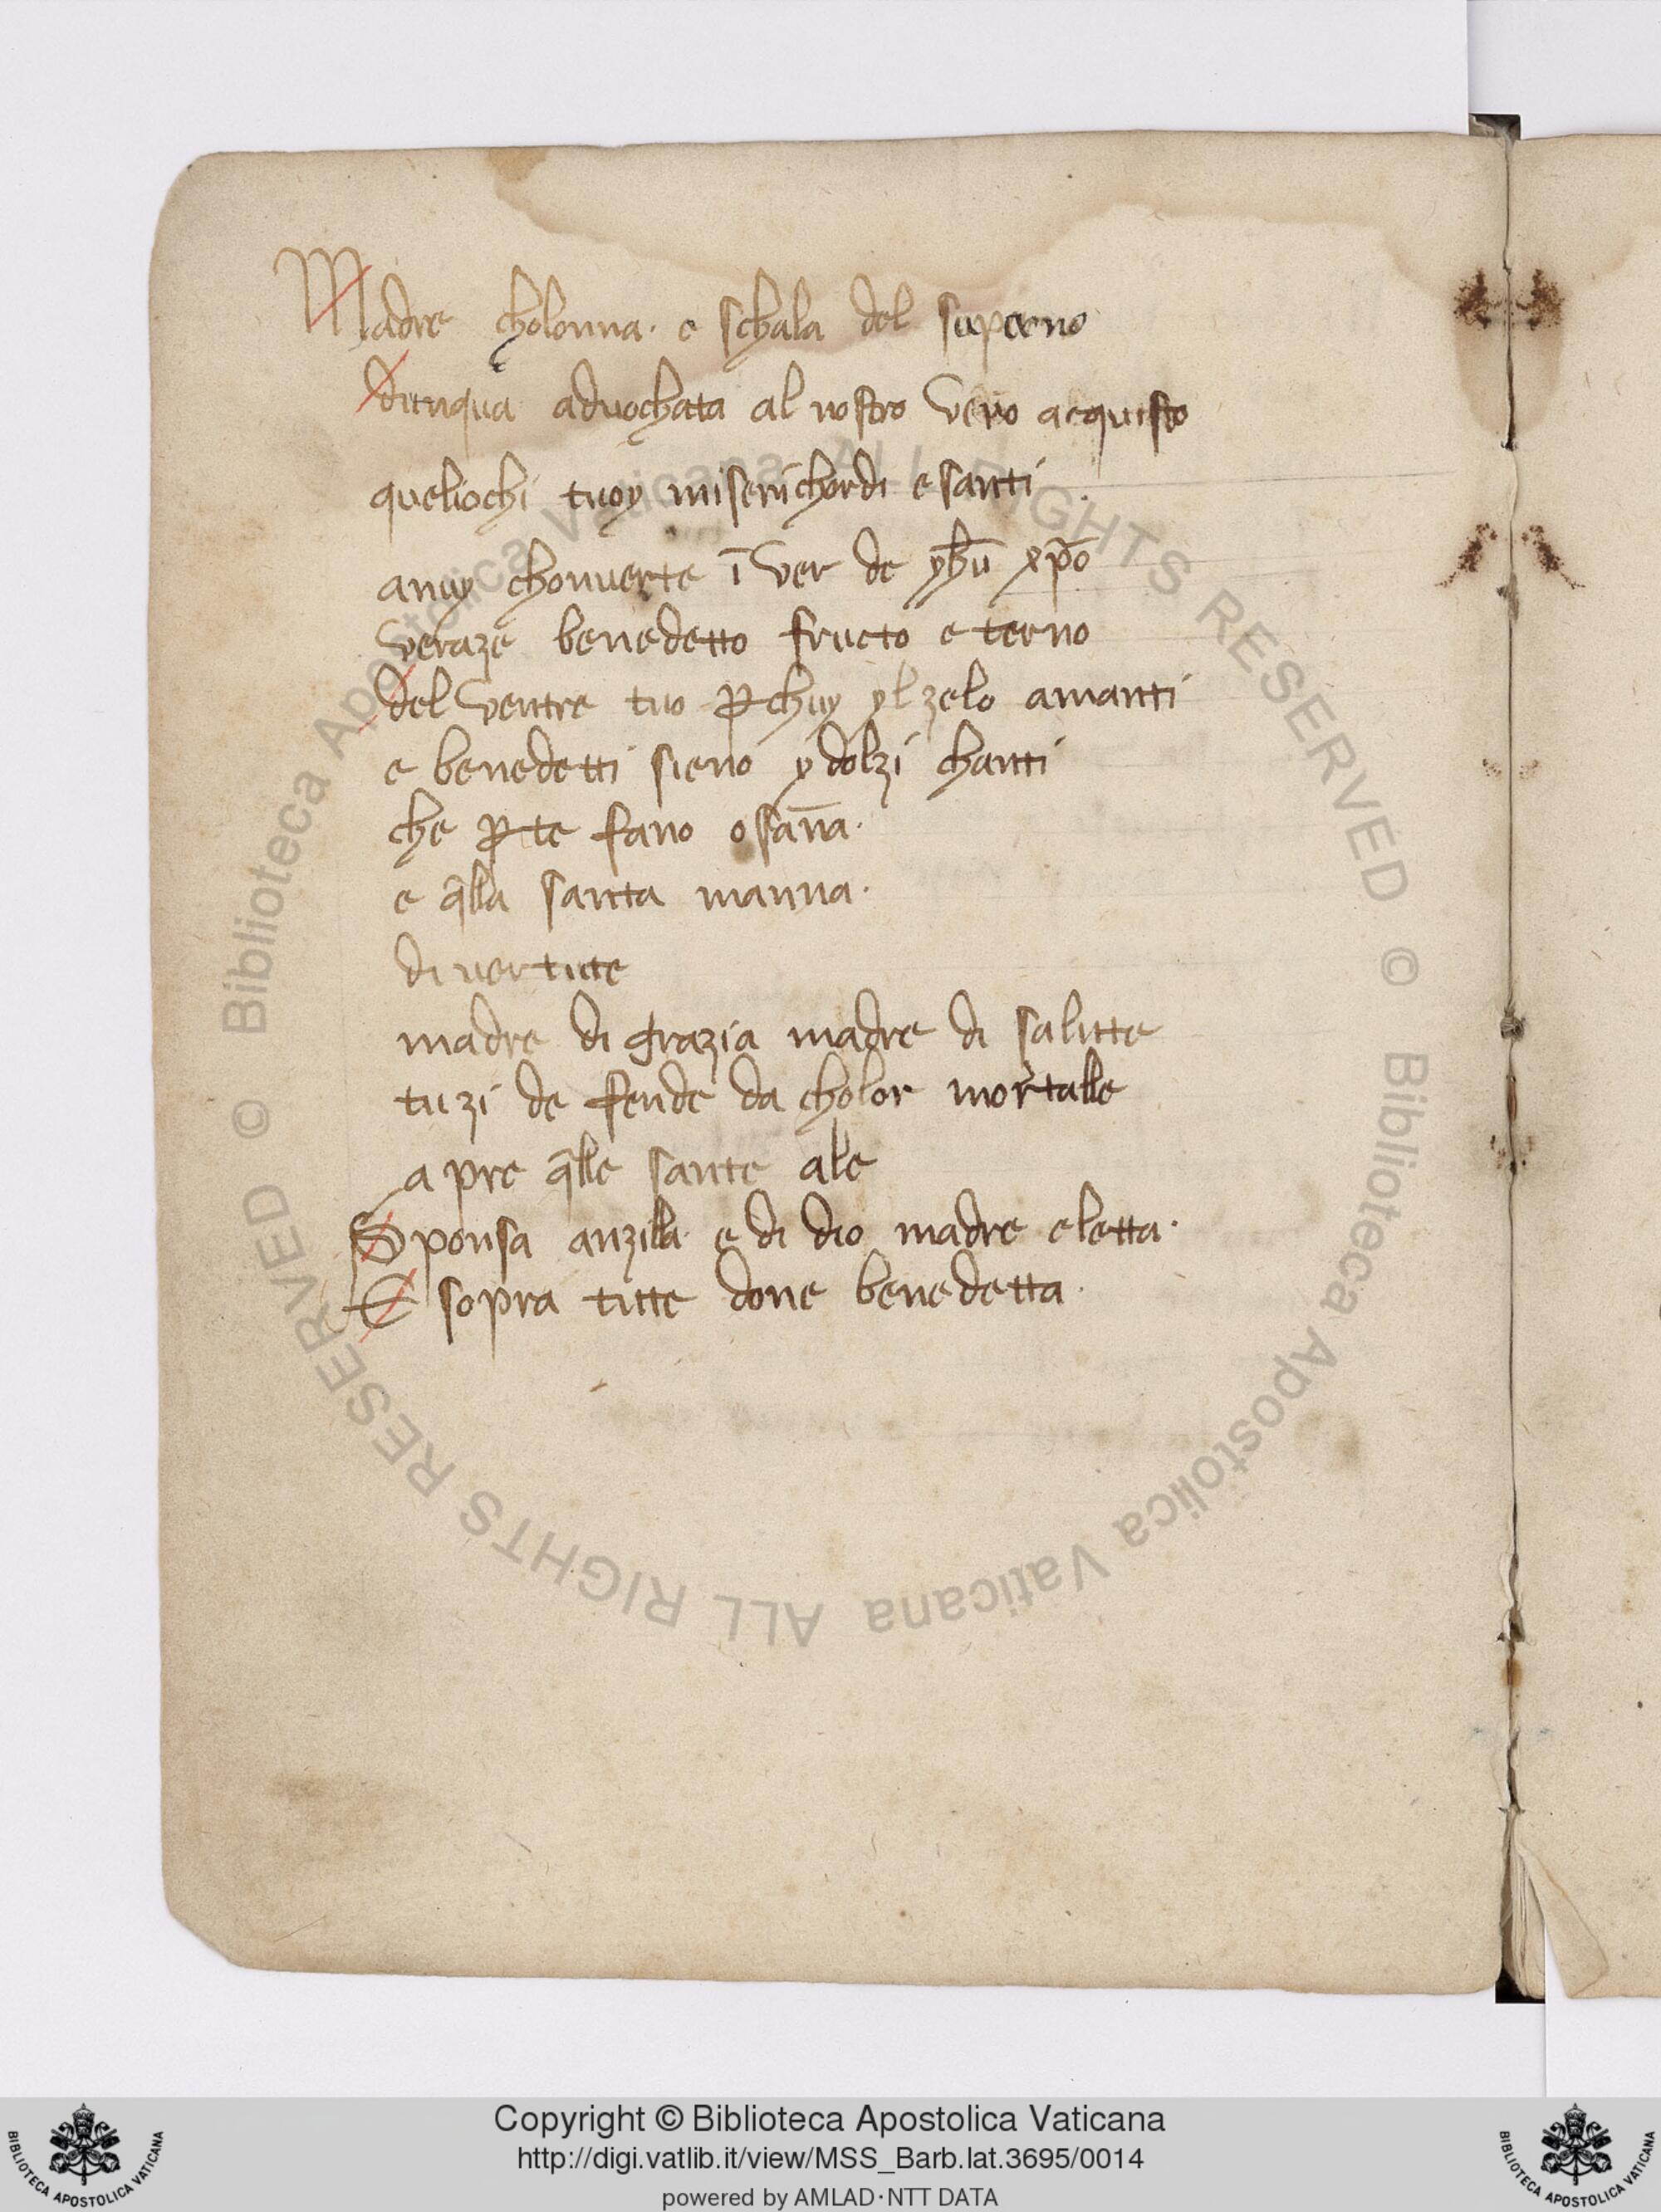 Madre cholonna· e schala del superno
dunqua aduochata al nostro vero acquisto
queliochi tuoy miserichordi e santi
anuy chonuerte ī ver de yhū xp̄o
veraze benedetto fructo eterno
del ventre tuo ꝑchuy yl zelo amanti
e benedetti sieno y dolzi chanti
che ꝑ te fano osan̄a·
e q̄lla santa manna·
di vertute
madre di grazia madre di salutte
tu zi defende da cholor mortalle
apre q̄lle sante ale
Sponsa anzilla· e di dio madre eletta·
E sopra tutte done benedetta·
© Biblioteca Apostolica Vaticana ALL RIGHTS RESERVED © Biblioteca Apostolica Vaticana ALL RIGHTS RESERVED
Copyright © Biblioteca Apostolica Vaticana
http://digi.vatlib.it/view/MSS_Barb.lat.3695/0014
powered by AMLAD·NTT DATA
BIBLIOTECA APOSTOLICA VATICANA
BIBLIOTECA APOSTOLICA VATICANA